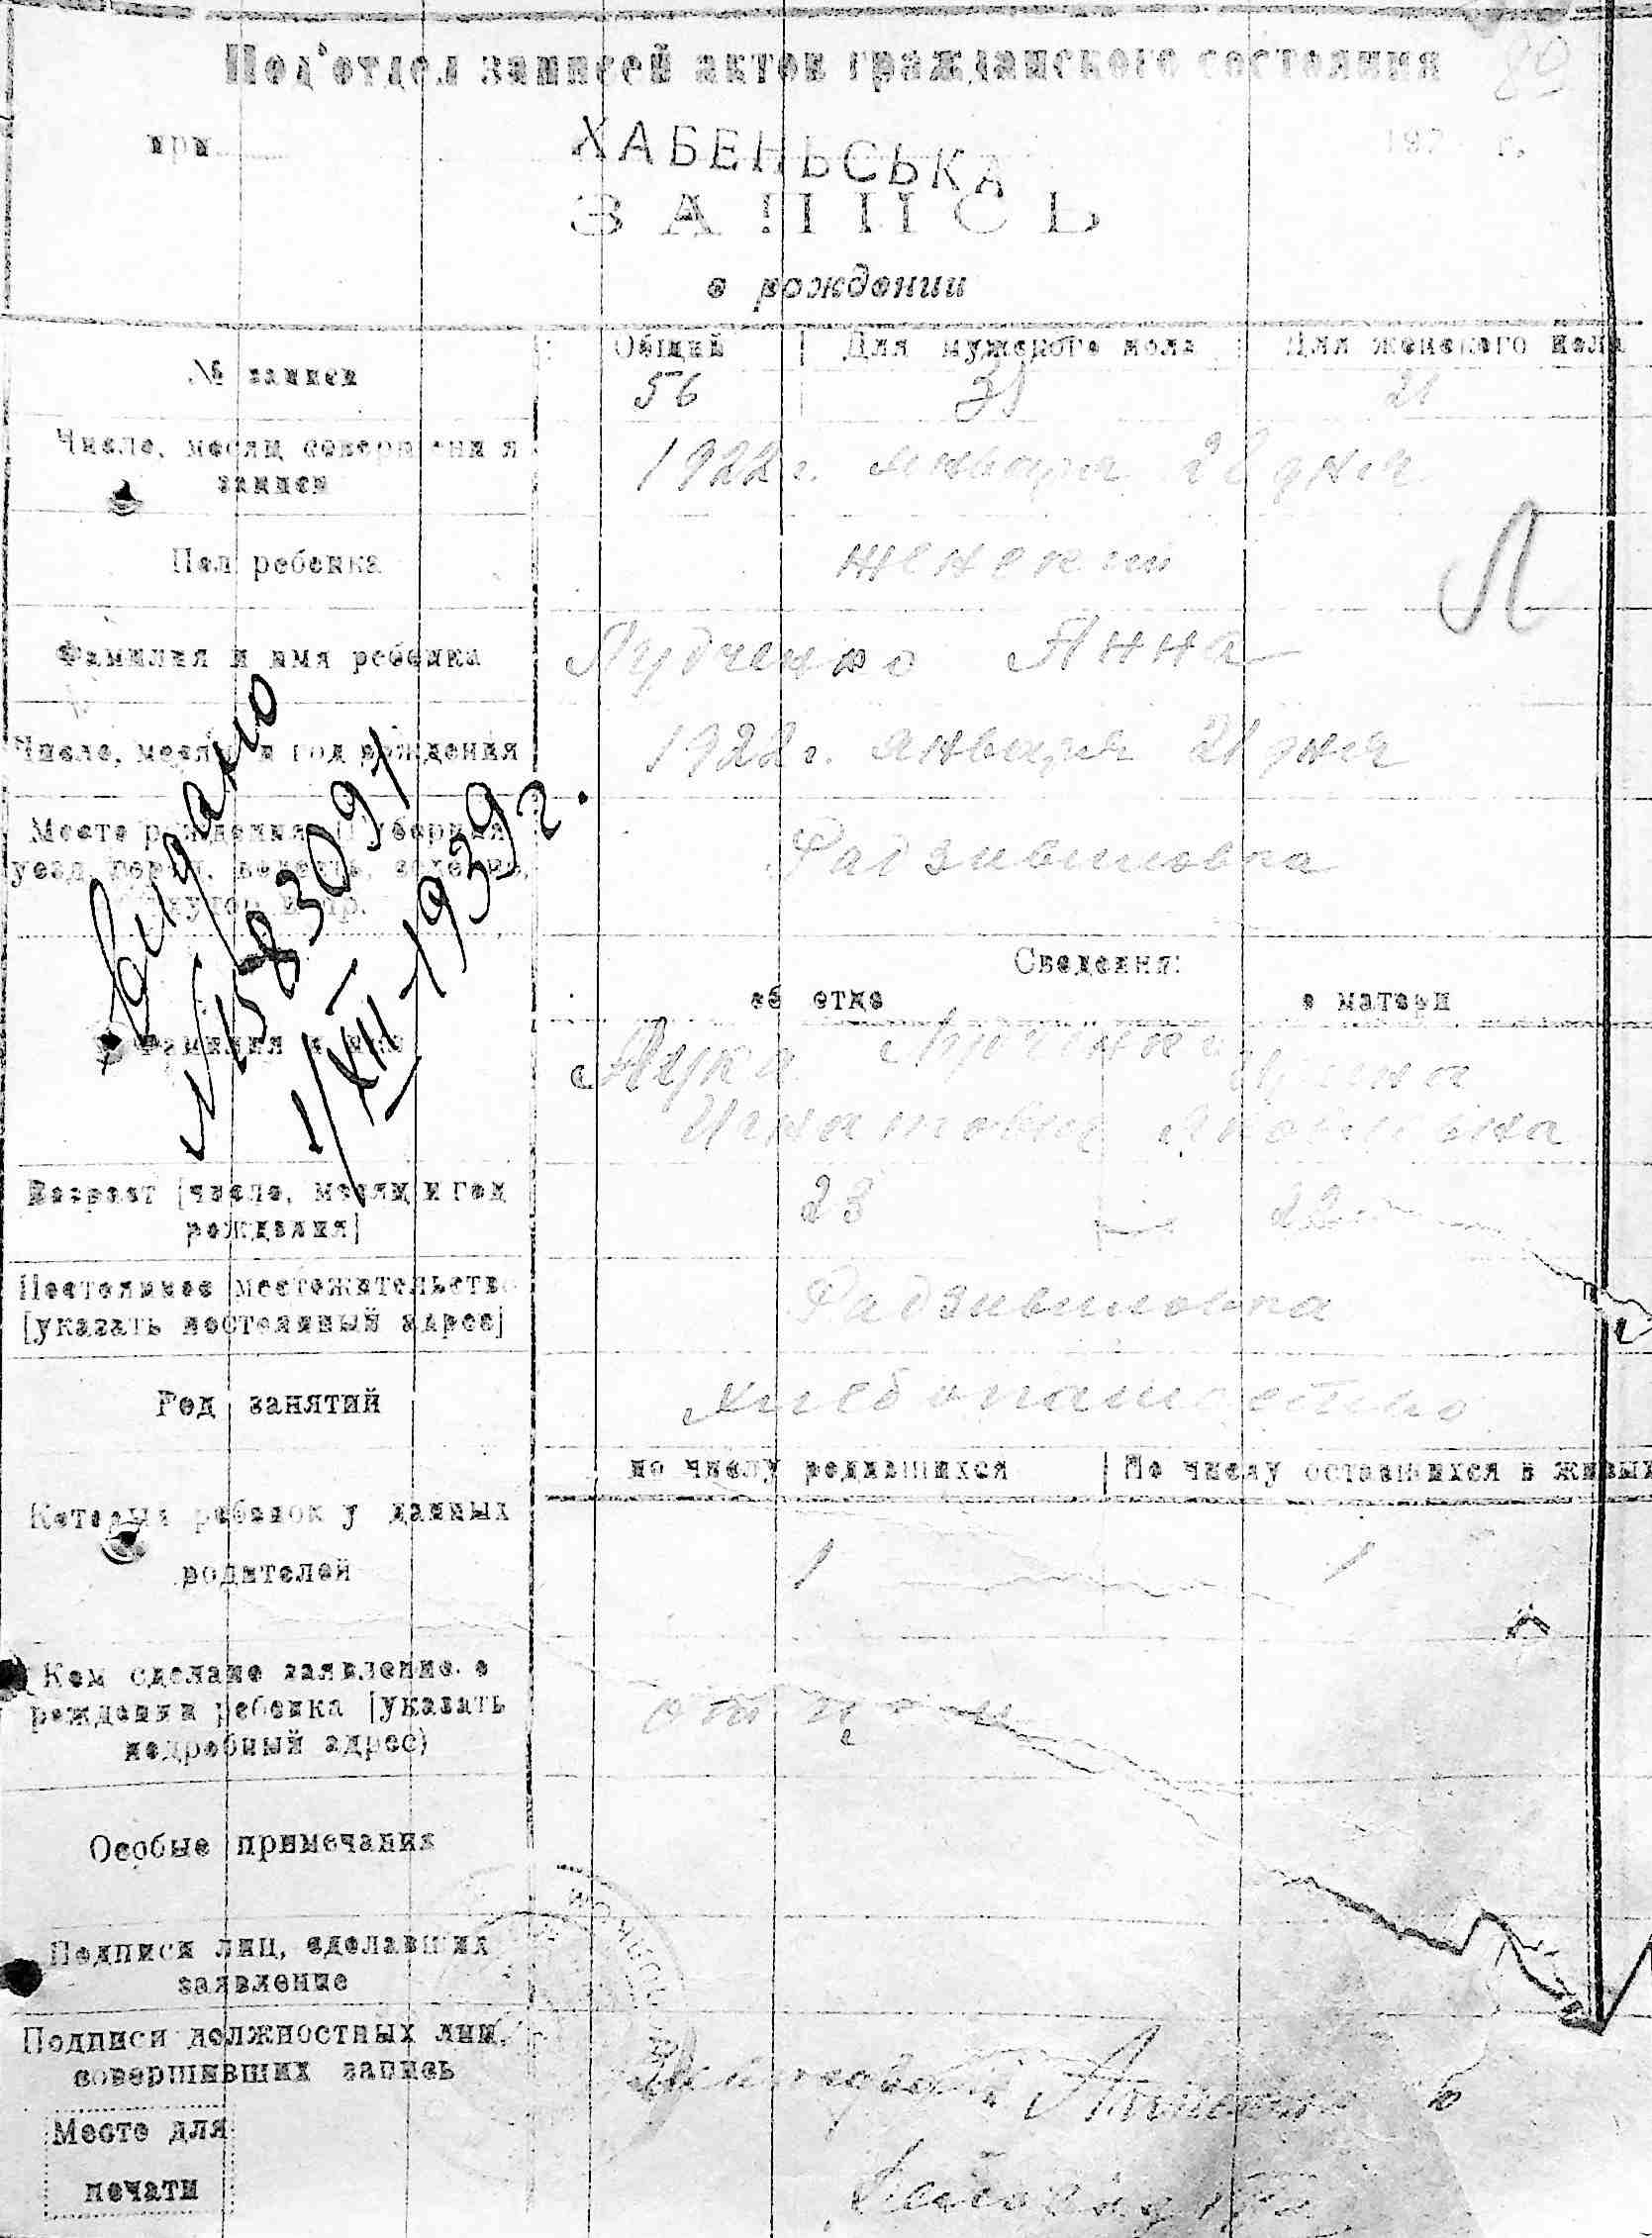 Под'отдел записей актов гражданского состояния
89
при 192 г.
ХАБЕНЬСЬКА
ЗАПИСЬ
о рождении
№ записи
Общий Для мужского пола Для женского пола
56 21
Число, месяц совершения записи
1922 г. января 28 дня
Пол ребенка
женский
Л
Фамилия и имя ребенка
Лудченко Анна
Число, месяц и год рождения
1922 г. января 21 дня
Место рождения (Губерния,
уезд, город, волость, деревня,
хутор и пр.
Радзивиловка
Видано
№ 83091
1/XII-1939 г.
Сведения:
об отце о матери
Фамилия и имя
Лука
Игнатович Яковлевна
Возраст [число, месяц и год
рождения]
23 22
Постоянное местожительство
[указать постоянный адрес]
Радзивиловка
Род занятий
хлебопашество
по числу родившихся По числу оставшихся в живых
Который ребенок у данных
родителей
1 1
Кем сделано заявление о
рождении ребенка [указать
подробный адрес)
отцом
Особые примечания
Подписи лиц, сделавших
заявление
Подписи должностных лиц,
совершивших запись
Место для
печати